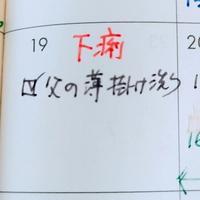 19 下痢
☑父の薄掛け洗う
20